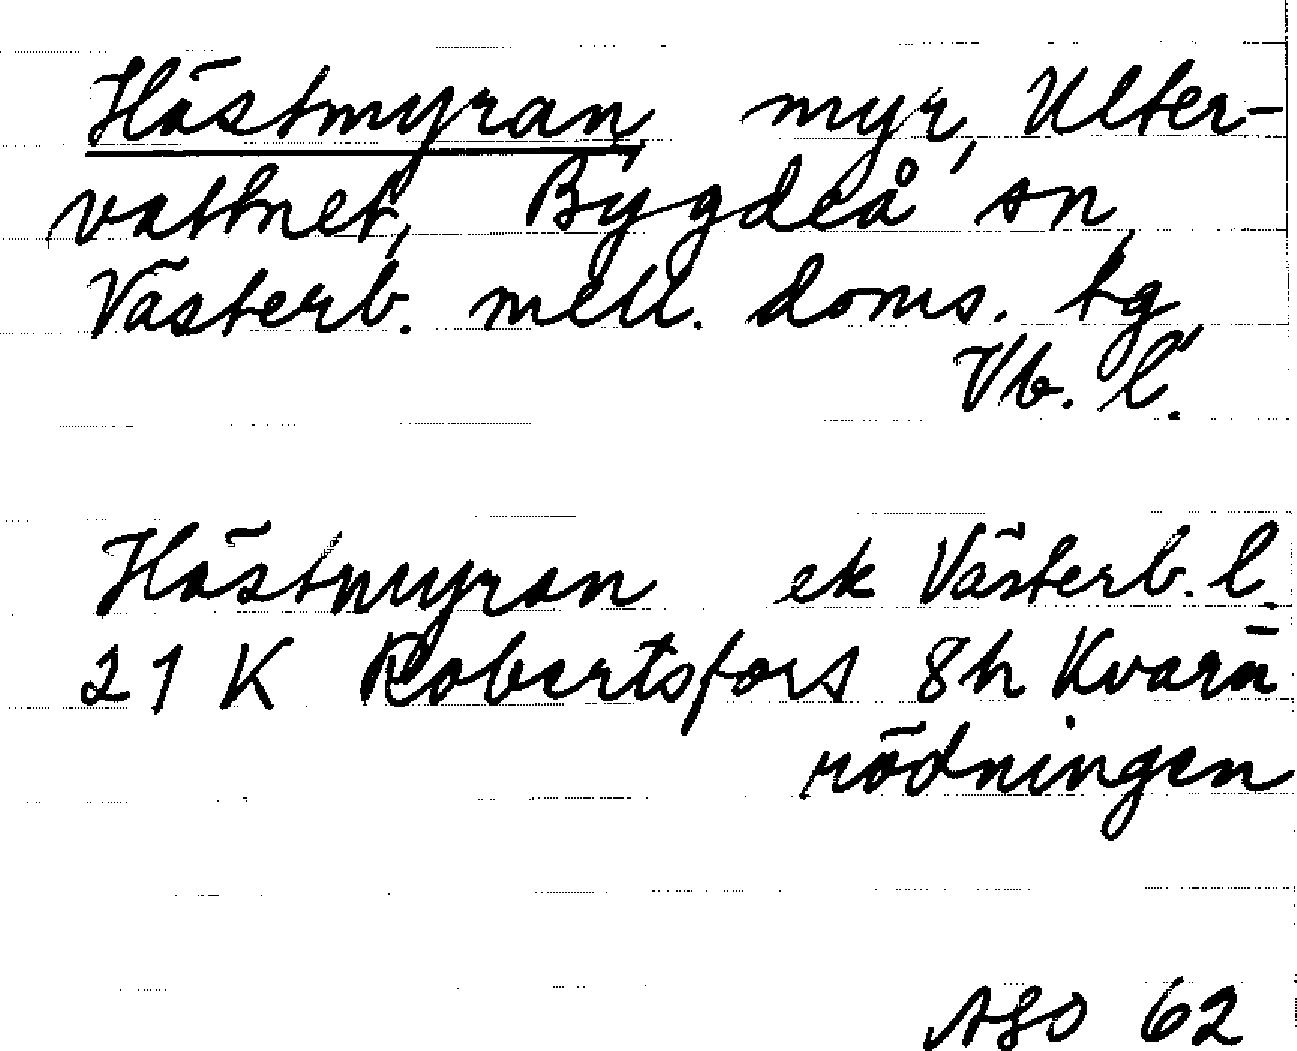 Hästmyran myr, Ulter-
vattnet, Bygdeå sn,
Västerb. mell. doms. tg,
Vb. l.
Hästmyran ek Västerb. l.
21 K Robertsfors 8h Kvarn
rödningen
ASO 62